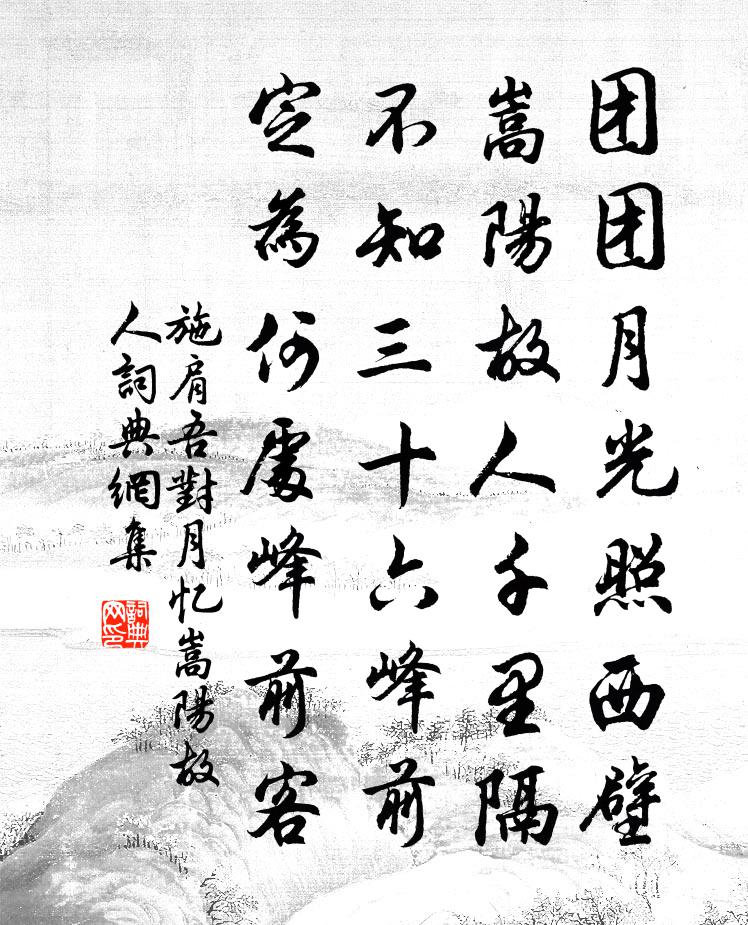 团团月光照西壁
嵩陽故人千里隔
不知三十六峰前
定為何處峰前客
施肩吾對月忆嵩陽故
人詞典網集
詞典
网印